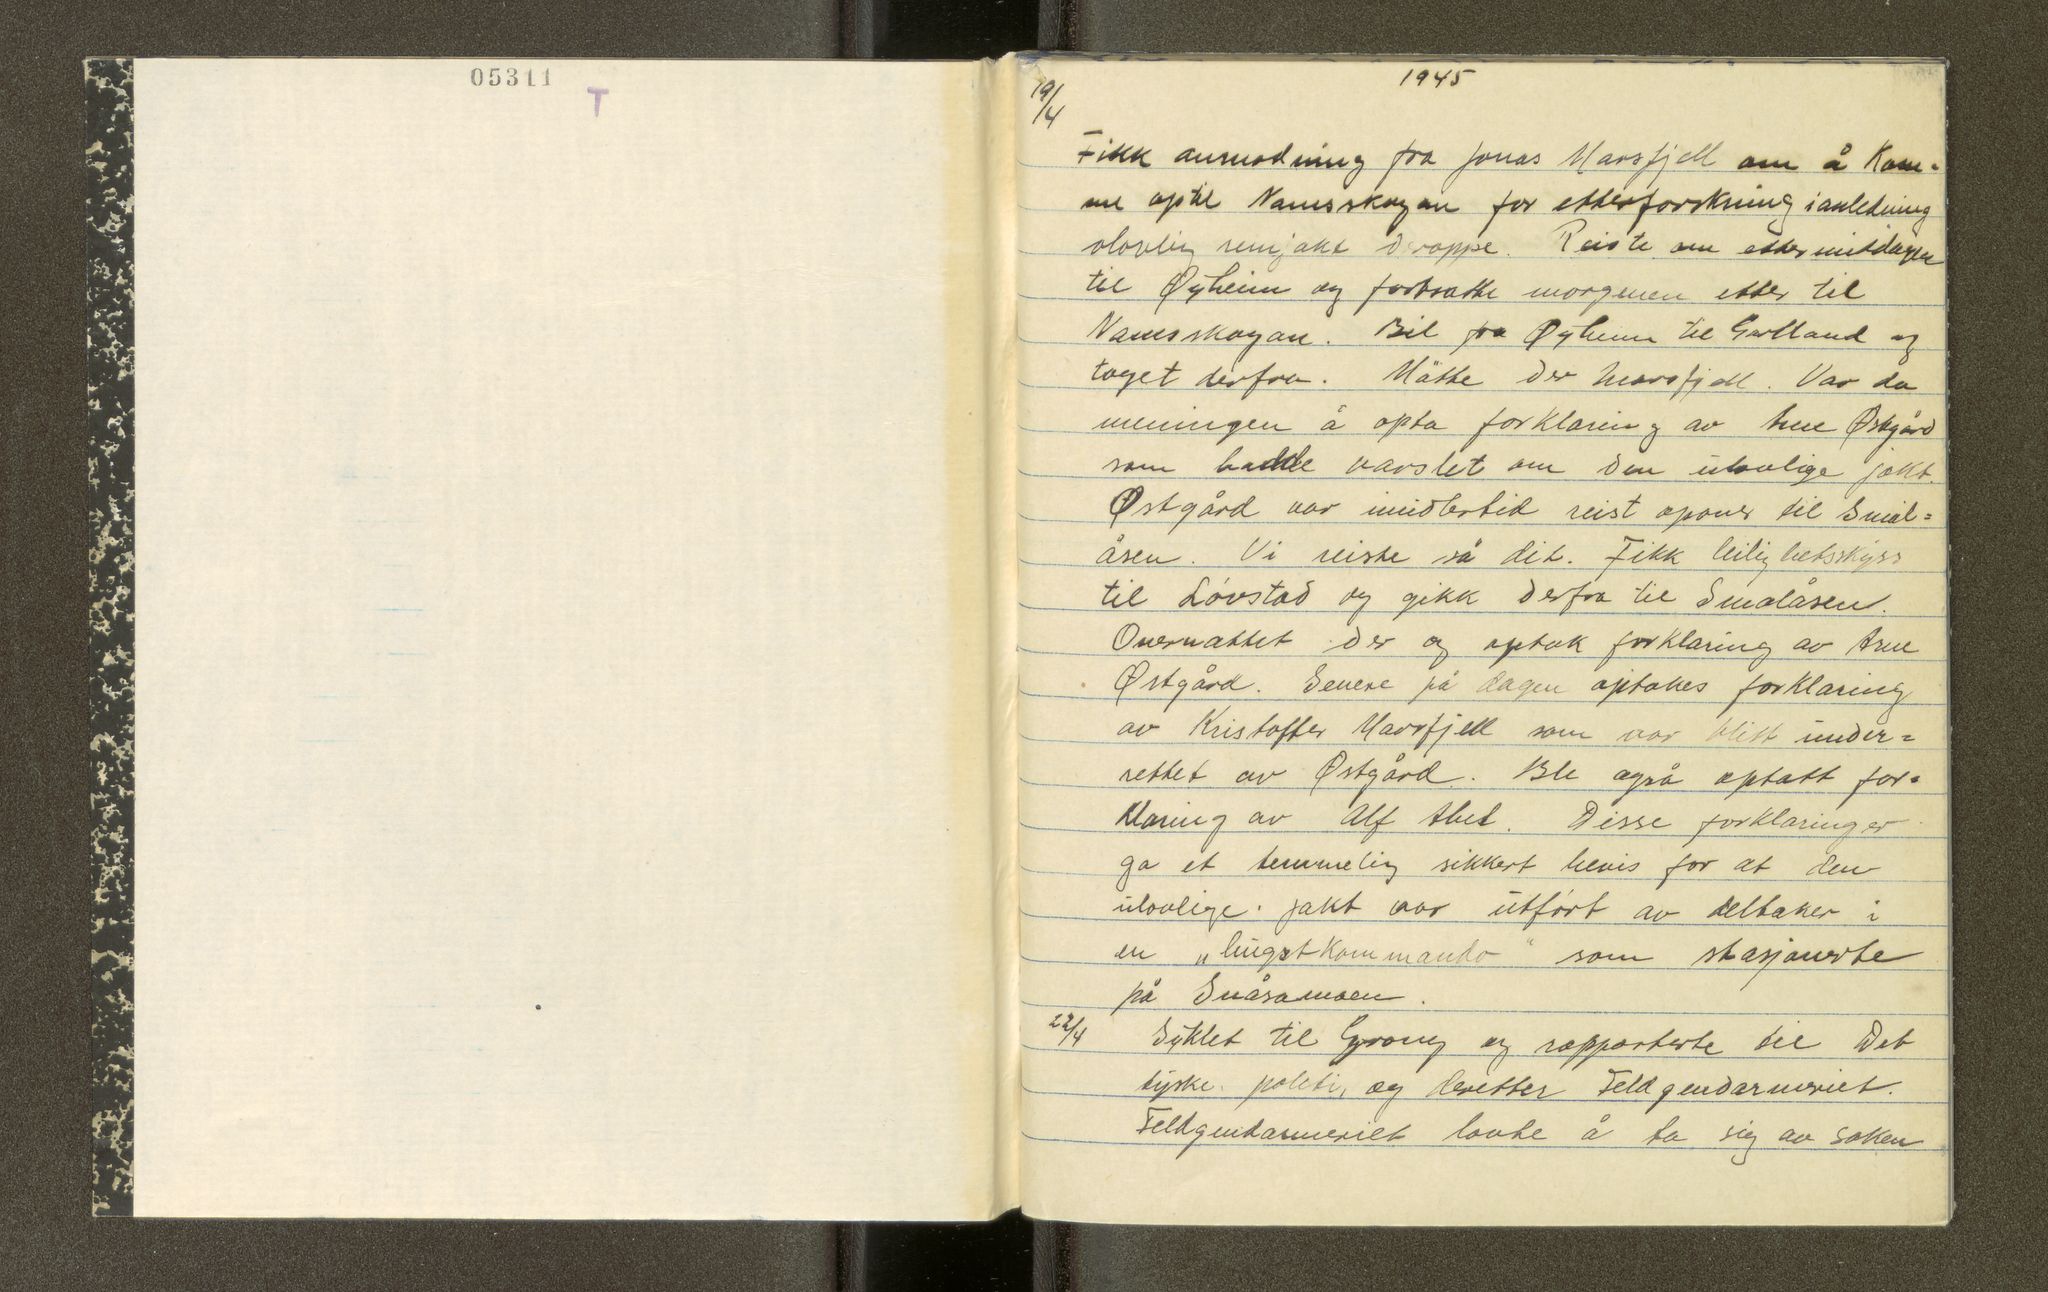 05311
T
1945
19/4
Fikk anmodning fra Jonas Marsfjell om å kom=
me optil Namsskogan for etterforskning i anledning
ulovlig renjakt deroppe. Reiste om ettermiddagen
til Øyheim og fortsatte morgenen etter til
Namsskogan. Bil fra Øyheim til Gartland og
toget derfra. Møtte der Marsfjell. Var da
meningen å opta forklaring av Arne Østgård
som hadde varslet om den ulovlige jakt.
Østgård var imidlertid reist opover til Smal=
åsen. Vi reiste så dit. Fikk leilighetsskyss
til Lövstad og gikk derfra til Smalåsen.
Overnattet der og optok forklaring av Arne
Østgård. Senere på dagen optokes forklaring
av Kristoffer Marsfjell som var blitt under=
rettet av Østgård. Ble også optatt for=
klaring av Alf Abel. Disse forklaringer
ga et temmelig sikkert bevis for at den
ulovlige jakt var utført av deltaker i
en „hingstkommando" som stasjonerte
på Snåsamoen.
22/4 Syklet til Grong og rapporterte til Det
tyske politi, og deretter Feldgendarmeriet.
Feldgendarmeriet lovte å ta sig av saken